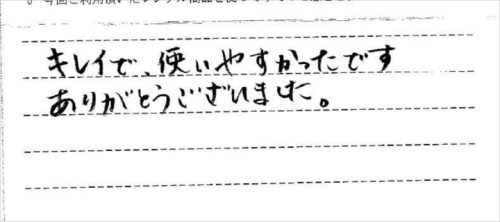 キレイで、使いやすかったです
ありがとうございました。